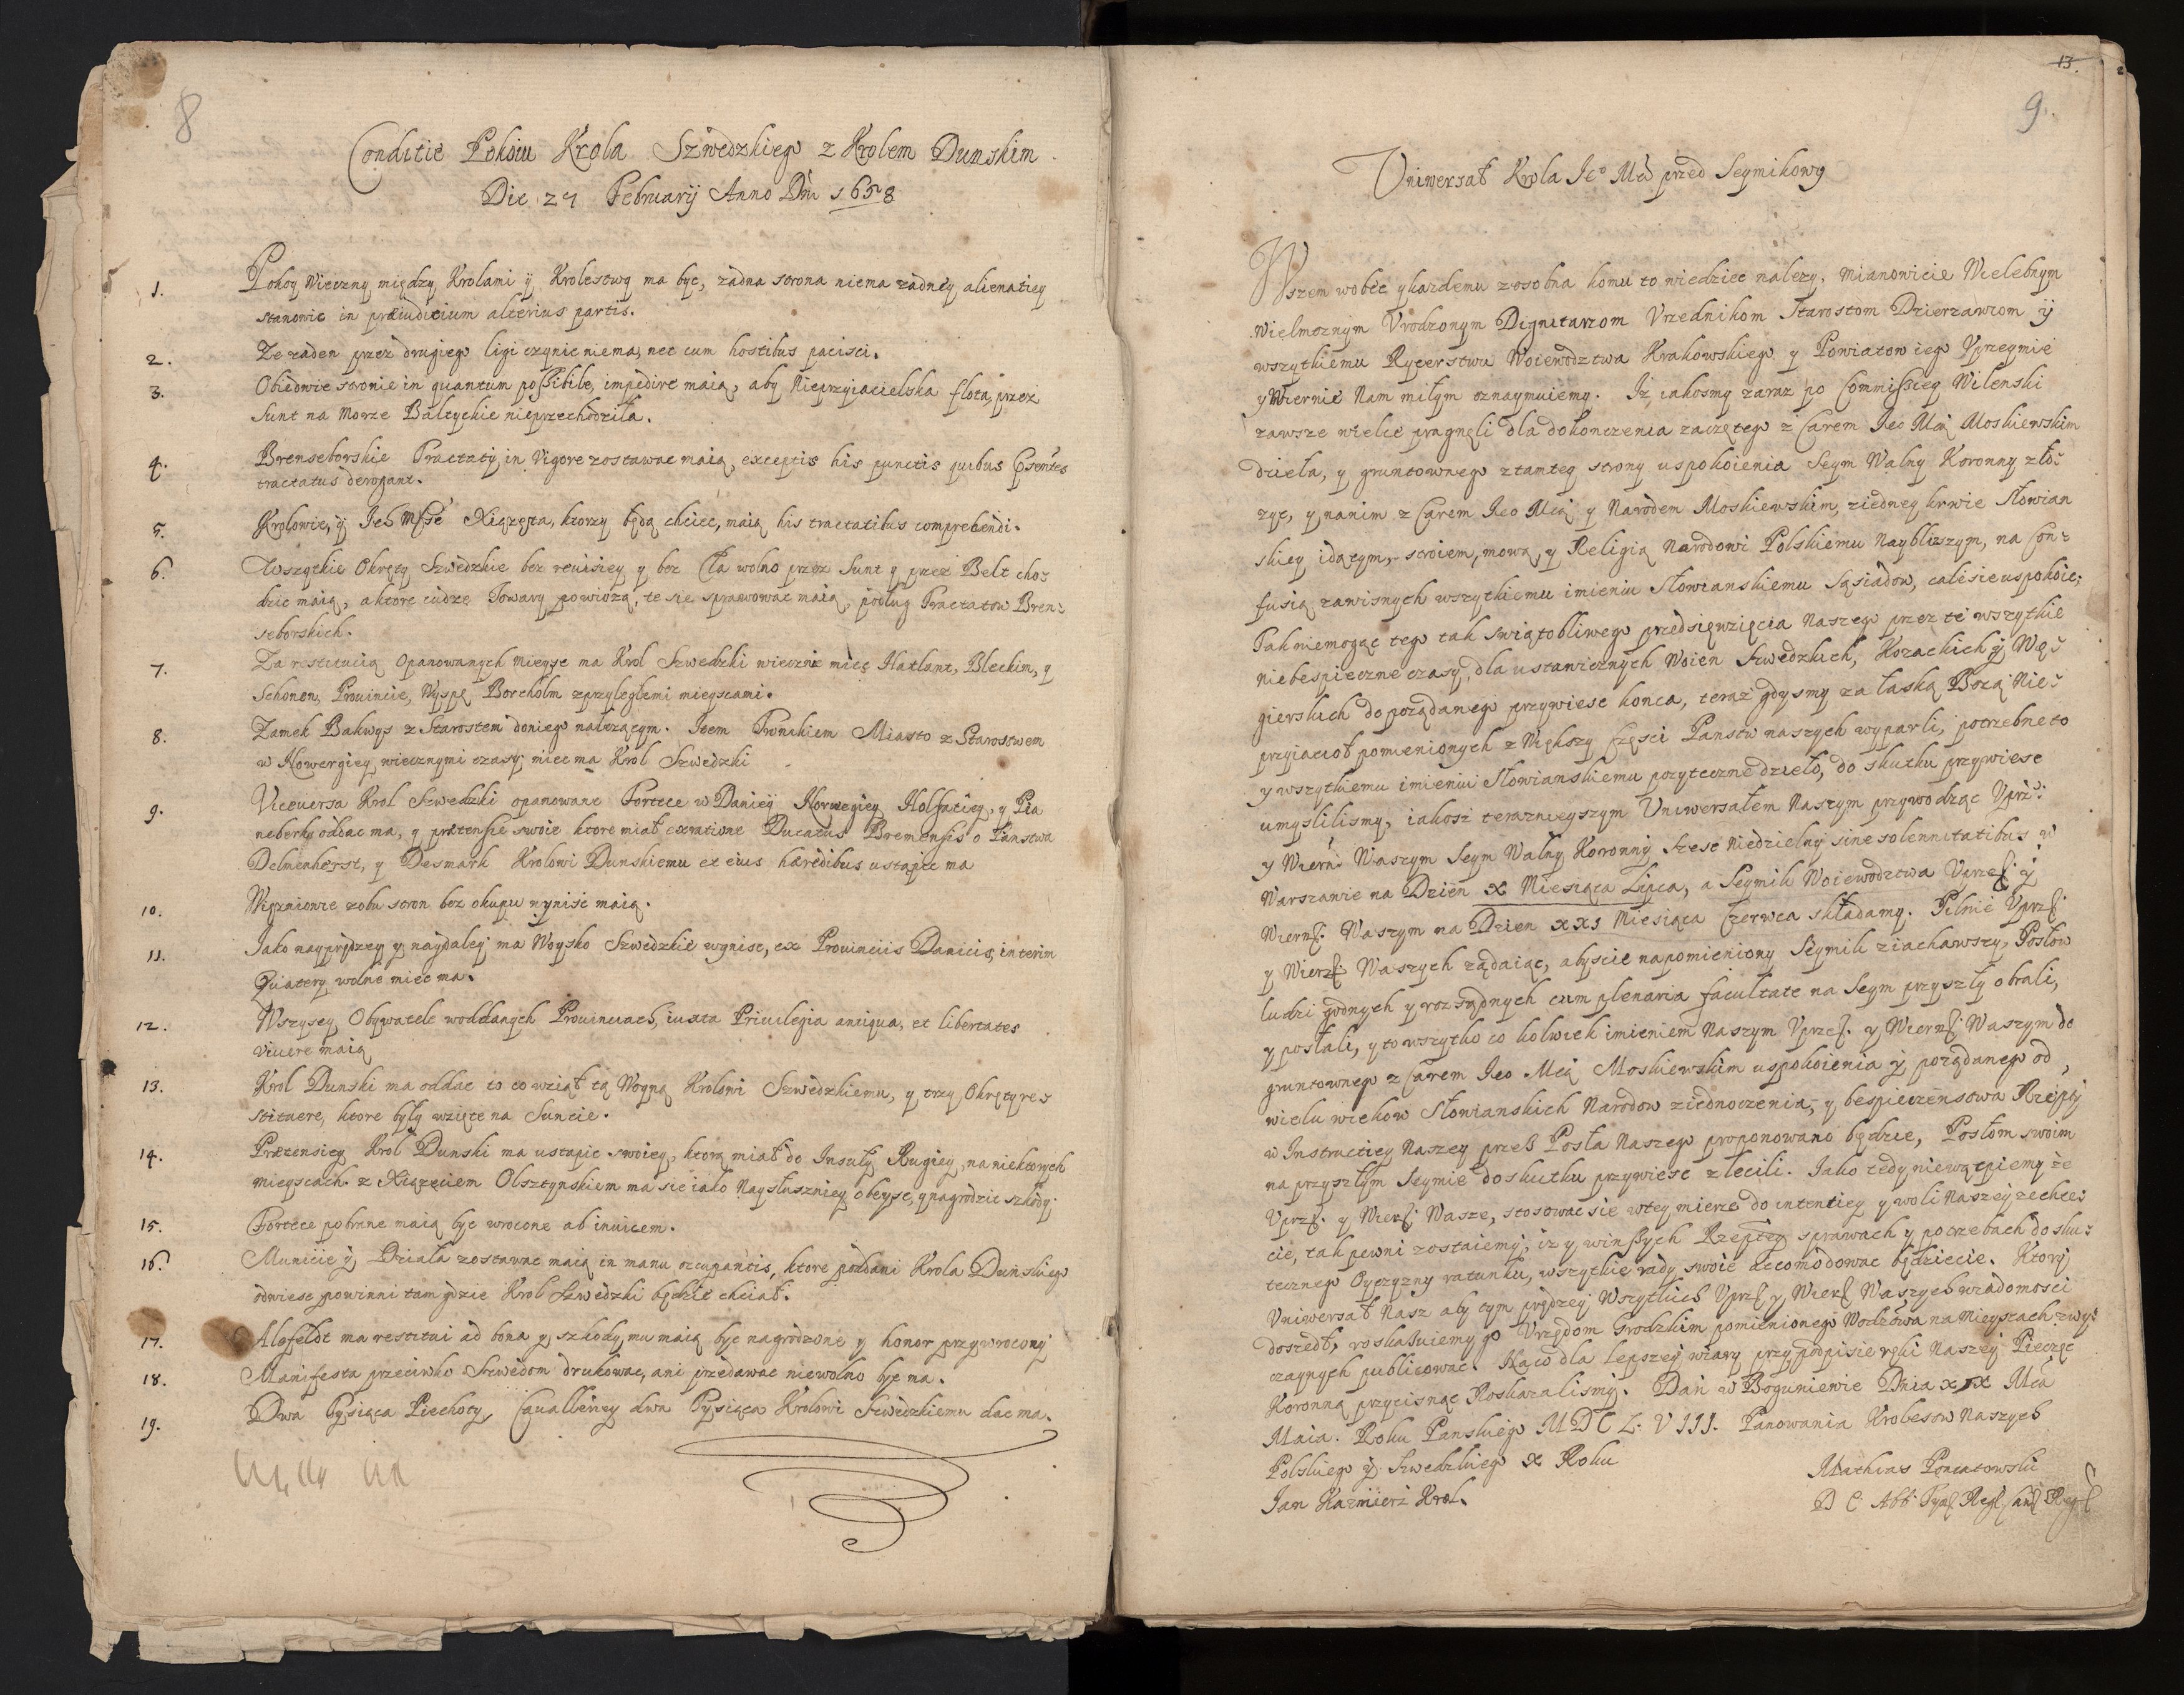 8
Conditie Pokoiu Krola Szwedzkiego z Krolem Dunskim
Die 27 Februarij Anno Dni 1658
1. Pokoy Wieczny między Krolami ÿ Krolestwy ma byc, żadna strona niema żadney alienatiey
stanowic in præiudicium alterius partis.
2. Ze żaden przez drugiego ligi czynic niema, nec cum hostibus pacisci.
3. Obiedwie stronie in quantum possibile, impedire maią, aby Nieprzyiacielska flota, przez
Sunt na Morze Baltyckie nieprzechodziła.
4. Brenseborskie Tractatÿ in Vigore zostawac maią, exceptis his punctis quibus
tractatus derogant.
5. Krolowie, ÿ Ich Xiążęta, ktorzy będą chciec, maią his tractatibus comprehendi.
6. Wszytkie Okręty Szwedzkie bez reuisiey y bez Cła wolno przez Sunt y przez Belt cho-
dzic maią, a ktore cudze Towary powiozą, te się sprawowac maią, podług Tractatow Bren-
seborskich.
7. Za restitucią Opanowanych Mieysc ma Krol Szwedzki wiecznie miec Hatlant, Bleckin, y
Schonen, Prouincie, Wyspę Borcholm z przyległemi mieyscami.
8. Zamek Bakwys z Starostwem doniego należącym. Item Tronthiem Miasto z Starostwem
w Nowergiey, wiecznymi czasy miec ma Krol Szwedzki
9. Viceuersa Krol Szwedzki opanowane Fortece w Daniey Norwegiey Holsatiey, y Pia
neberku oddac ma, y prætensie swoie ktore miał ex ratione Ducatus Bremensis o Panstwa
Delmenherst, y Desmark Krolowi Dunskiemu et eius hæredibus ustąpic ma
10. Więzniowie z obu stron bez okupu wynisc maią.
11. Iako nayprędzey y naydaley ma Woysko Szwedzkie wynisc, ex Prouinciis Danicis, interim
Quatery wolne miec ma.
12. Wszyscy Obywatele w oddanych Prouinciach, iuxta Priuilegia antiqua, et libertates
viuere maią
13. Krol Dunski ma oddac to co wziął tą Woyną Krolowi Szwedzkiemu, y trzy Okręty res-
tituere, ktore były wzięte na Suncie.
14. Prætensiey Krol Dunski ma ustąpic swoiey, ktorą miał do Insuły Rugiey, na niektorych
mieyscach. z Xiążęciem Olsztynskiem ma się iako Naysłuszniey obeysc, y nagrodzic szkody
15. Fortece pobrane maią byc wrocone ab inuicem.
16. Municie ÿ Działa zostawac maią in manu occupantis, ktore poddani Krola Dunskiego
odwiesc powinni tam gdzie Krol Szwedzki będzie chciał.
17. Alefeldt ma restitui ad bona y szkody mu maią byc nagrodzone y honor przywrocony
18. Manifesta przeciwko Szwedom drukowac, ani przedawac niewolno byc ma.
19. Dwa Tysiąca Piechoty, Caualleriey dwa Tysiąca Krolowi Szwedzkiemu dac ma.
13.
9.
Vniwersał Krola Jeo Mci przed Seymikowy
Wszem wobec y każdemu z osobna komu to wiedziec należy. Mianowicie Wielebnym
Wielmożnym Vrodzonym Dignitarzom Vrzednikom Starostom Dzierżawcom ÿ
wszytkiemu Rycerstwu Woiewodztwa Krakowskiego y Powiatow iego Vprzeymie
y Wiernie Nam miłym oznaymuiemy. Iż iakosmy zaraz po Commissiey Wilenski
zawsze wielce pragnęli dla dokonczenia zaczętego z Carem Jeo Mcią Moskiewskim
dzieła, y gruntownego z tamtey strony uspokoienia Seym Walny Koronny zło-
zyc, y na nim z Carem Jeo Mcią y Narodem Moskiewskim, z iedney krwie Słowian
skiey idącym, stroiem, mową, y Religią Narodowi Polskiemu Naybliższym, na Con-
fusią zawisnych wszytkiemu imieniu Słowianskiemu Sąsiadow, cale się uspokoic;
Tak niemogąc tego tak swiątobliwego przedsięwzięcia Naszego przez te wszytkie
niebespieczne czasy, dla ustawicznych Woien Szwedzkich, Kozackich ÿ Wę-
gierskich do pożądanego przywiesc konca, teraz gdysmy za łaską Bożą Nie-
przyiacioł pomienionych z Większy Części Panstw naszych wyparli, potrzebne to
y wszytkiemu imieniu Słowianskiemu pożyteczne dzieło, do skutku przywiesc
umyslilismy, iakoż teraznieyszym Uniwersałem Naszym przywodząc Vprz:
y Wiern: Waszym Seym Walny Koronny Szesc Niedzielny sine solennitatibus w
Warszawie na Dzien X Miesiąca Lipca, a Seymik Woiewodztwa Vprz: ÿ
Wiern: Waszym na Dzien XXI Miesiąca Czerwca składamy. Pilnie Vprz:
y Wiern: Waszych żądaiąc, abyscie na pomieniony Seymik ziachawszy, Posłow
ludzi godnych y rozsądnych cum plenaria facultate na Seym przyszły obrali,
y posłali, y to wszytko co kolwiek imieniem Naszym Vprz: y Wiern: Waszym do
gruntownego z Carem Jeo Mcią Moskiewskim uspokoienia ÿ pożądanego od
wielu wiekow Słowianskich Narodow ziednoczenia, y bespieczenstwa Rzepty
w Instructiey Naszey przez Posła Naszego proponowano będzie, Posłom swoim
na przyszłym Seymie do skutku przywiesc zlecili. Iako tedy niewątpiemy że
Vprz: y Wier: Wasze, stosowac się w tey mierze do intentiey y woli Naszey zechce-
cie, tak pewni zostaiemy, iż y w inszych Rzeptey sprawach y potrzebach do sku-
tecznego Oyczyzny ratunku, wszytkie rady swoie accomodowac będziecie. Ktory
Vniwersał Nasz aby tym prędzey Wszytkich Vprz: y Wier: Waszych wiadomosci
doszedł, roskazuiemy go Vrzędom Grodzkim pomienionego Wodztwa na Mieyscach zwy-
czaynych publicowac. Na co dla lepszey wiary przy podpisie ręki Naszey Pieczęc
Koronną przycisnąc Roskazalismy. Dan w Boguniewie Dnia XIX Mca
Maia. Roku Panskiego MDCLVIII. Panowania Krolestw Naszych
Polskiego ÿ Szwedzkiego X Roku
Jan Kazmierz Krol.
Mathias Poniatowski